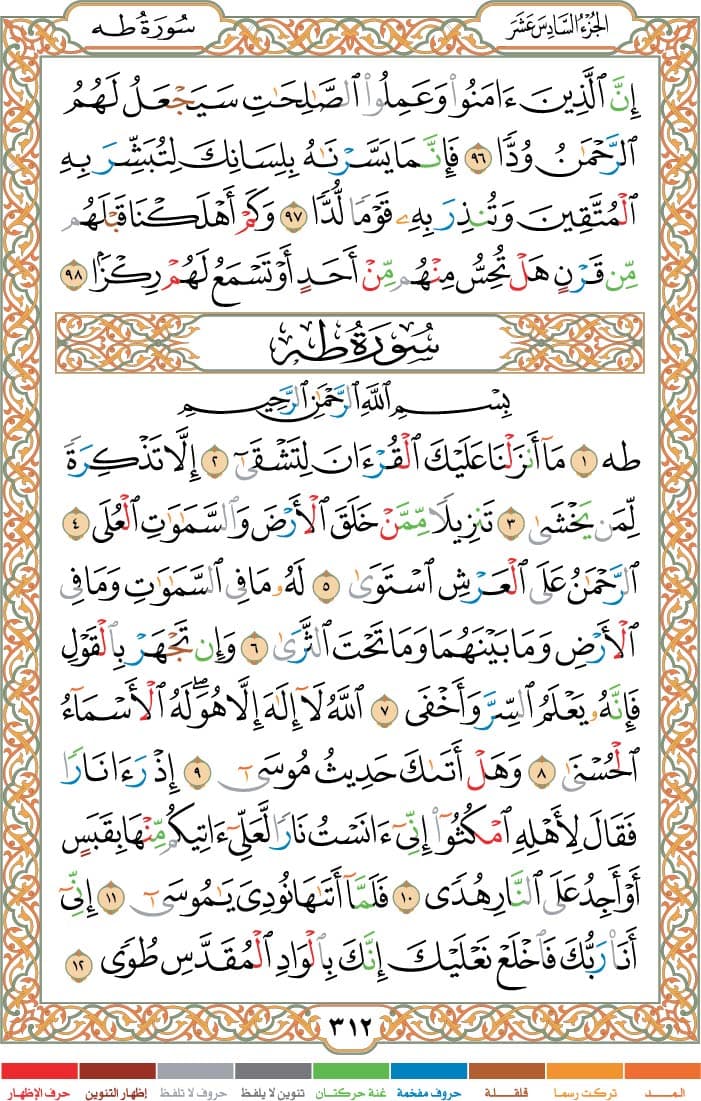 الجُزْءُ السَّادِسَ عَشَرَ
سُورَةُ طه
إِنَّ ٱلَّذِينَ ءَامَنُوا۟ وَعَمِلُوا۟ ٱلصَّـٰلِحَـٰتِ سَيَجْعَلُ لَهُمُ
ٱلرَّحْمَـٰنُ وُدًّا ٩٦ فَإِنَّمَا يَسَّرْنَـٰهُ بِلِسَانِكَ لِتُبَشِّرَ بِهِ
ٱلْمُتَّقِينَ وَتُنذِرَ بِهِۦ قَوْمًا لُّدًّا ٩٧ وَكَمْ أَهْلَكْنَا قَبْلَهُم
مِّن قَرْنٍ هَلْ تُحِسُّ مِنْهُم مِّنْ أَحَدٍ أَوْ تَسْمَعُ لَهُمْ رِكْزًۢا ٩٨
سُورَةُ طه
بِسْمِ ٱللَّهِ ٱلرَّحْمَـٰنِ ٱلرَّحِيمِ
طه ١ مَآ أَنزَلْنَا عَلَيْكَ ٱلْقُرْءَانَ لِتَشْقَىٰٓ ٢ إِلَّا تَذْكِرَةً
لِّمَن يَخْشَىٰ ٣ تَنزِيلًا مِّمَّنْ خَلَقَ ٱلْأَرْضَ وَٱلسَّمَـٰوَٰتِ ٱلْعُلَى ٤
ٱلرَّحْمَـٰنُ عَلَى ٱلْعَرْشِ ٱسْتَوَىٰ ٥ لَهُۥ مَا فِى ٱلسَّمَـٰوَٰتِ وَمَا فِى
ٱلْأَرْضِ وَمَا بَيْنَهُمَا وَمَا تَحْتَ ٱلثَّرَىٰ ٦ وَإِن تَجْهَرْ بِٱلْقَوْلِ
فَإِنَّهُۥ يَعْلَمُ ٱلسِّرَّ وَأَخْفَى ٧ ٱللَّهُ لَآ إِلَـٰهَ إِلَّا هُوَ ۖ لَهُ ٱلْأَسْمَآءُ
ٱلْحُسْنَىٰ ٨ وَهَلْ أَتَىٰكَ حَدِيثُ مُوسَىٰٓ ٩ إِذْ رَءَا نَارًا
فَقَالَ لِأَهْلِهِ ٱمْكُثُوٓا۟ إِنِّىٓ ءَانَسْتُ نَارًا لَّعَلِّىٓ ءَاتِيكُم مِّنْهَا بِقَبَسٍ
أَوْ أَجِدُ عَلَى ٱلنَّارِ هُدًى ١٠ فَلَمَّآ أَتَىٰهَا نُودِىَ يَـٰمُوسَىٰٓ ١١ إِنِّىٓ
أَنَا۠ رَبُّكَ فَٱخْلَعْ نَعْلَيْكَ إِنَّكَ بِٱلْوَادِ ٱلْمُقَدَّسِ طُوًى ١٢
٣١٢
المــد تركت رسما قلقلة حروف مفخمة غنة حركتان تنوين لا يلفظ حروف لا تلفظ إظهار التنوين حرف الإظهار